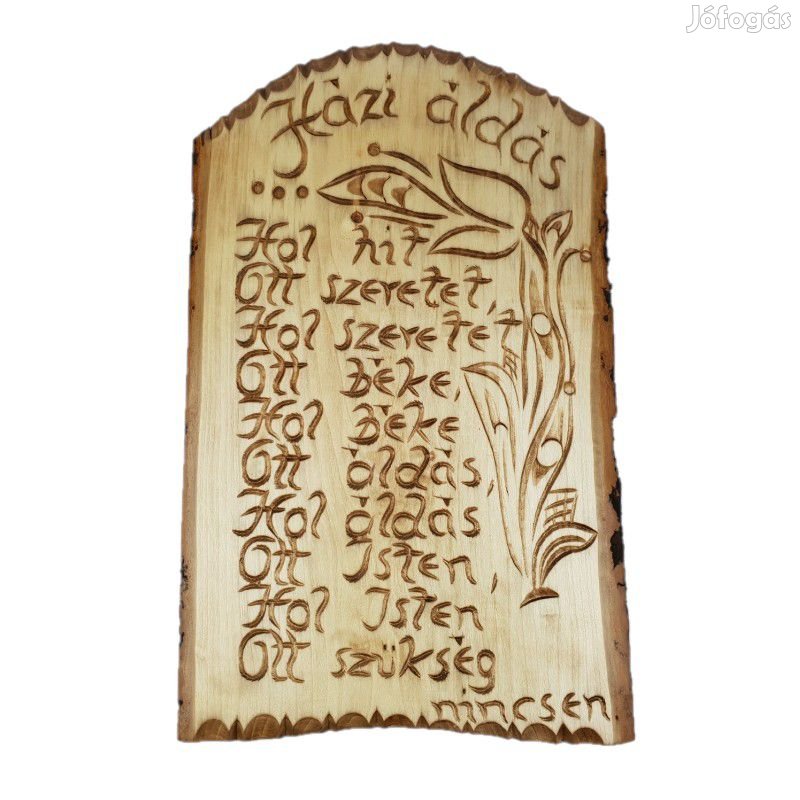 Jófogás
Házi áldás
...
Hol hit
Ott szeretet,
Hol szeretet
Ott Béke,
Hol Béke
Ott áldás,
Hol áldás
Ott Isten,
Hol Isten
Ott szükség
nincsen